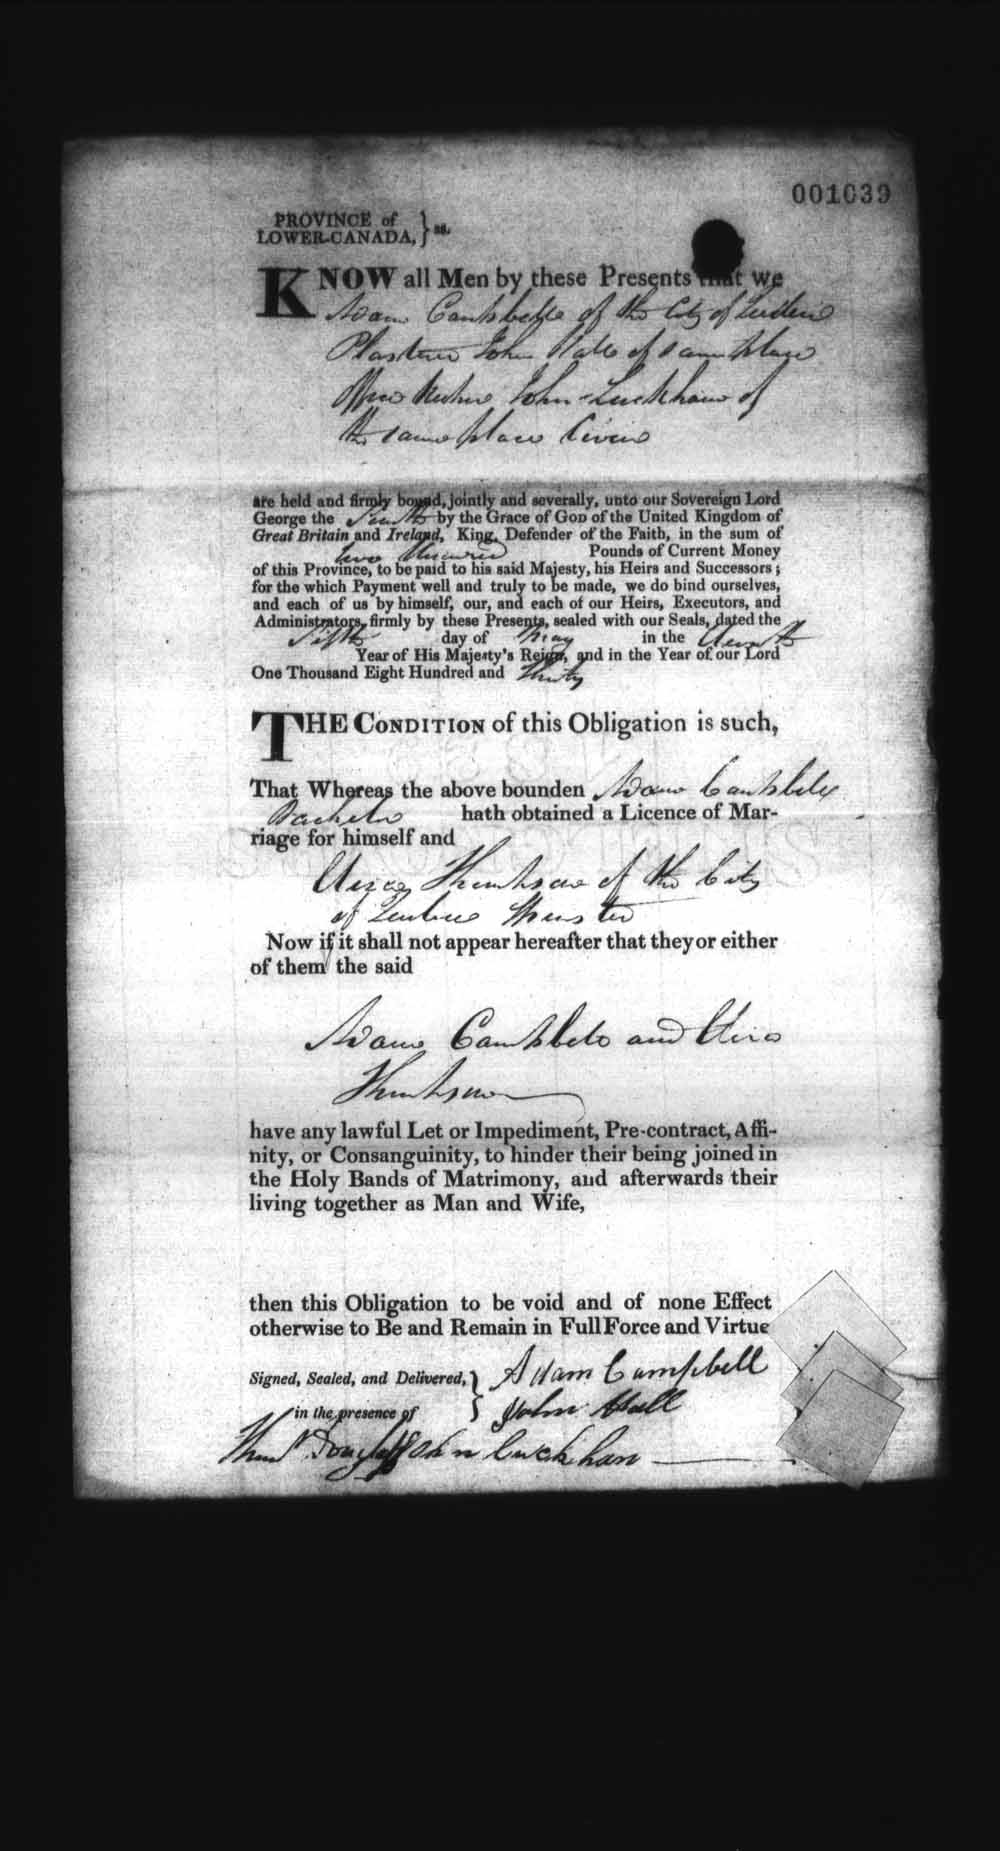 001039
PROVINCE of
LOWER-CANADA, } ss.
KNOW all Men by these Presents that we
Adam Campbell of the City of Quebec
Plasterer John Hall of same place
John Luckham of
the same place
are held and firmly bound, jointly and severally, unto our Sovereign Lord
George the Fourth by the Grace of GOD of the United Kingdom of
Great Britain and Ireland, King, Defender of the Faith, in the sum of
Two Hundred Pounds of Current Money
of this Province, to be paid to his said Majesty, his Heirs and Successors;
for the which Payment well and truly to be made, we do bind ourselves,
and each of us by himself, our, and each of our Heirs, Executors, and
Administrators, firmly by these Presents, sealed with our Seals, dated the
Fifth day of May in the
Year of His Majesty's Reign, and in the Year of our Lord
One Thousand Eight Hundred and Thirty
THE CONDITION of this Obligation is such,
That Whereas the above bounden Adam Campbell
Bachelor hath obtained a Licence of Mar-
riage for himself and
Thompson of the City
of Quebec Spinster
Now if it shall not appear hereafter that they or either
of them the said
Adam Campbell and
Thompson
have any lawful Let or Impediment, Pre-contract, Affi-
nity, or Consanguinity, to hinder their being joined in
the Holy Bands of Matrimony, and afterwards their
living together as Man and Wife,
then this Obligation to be void and of none Effect
otherwise to Be and Remain in Full Force and Virtue
Signed, Sealed, and Delivered, } Adam Campbell
in the presence of John Hall
John Luckham